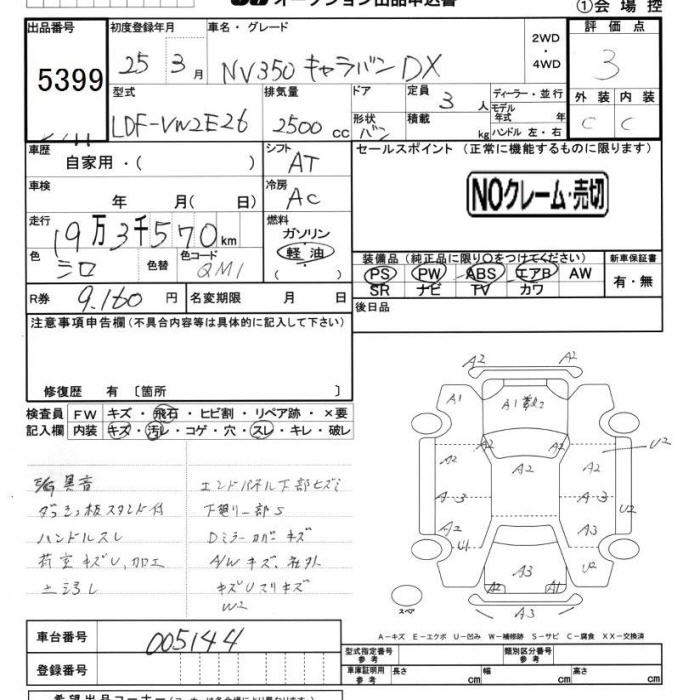 オークション出品申込書
①会場控
出品番号 5399
初度登録年月 25 3月
車名・グレード NV350 キャラバン DX
2WD・4WD
評価点 3
外装 内装
C C
型式 LDF-VW2E26
排気量 2500 cc
ドア 形状 バン
定員 3 人
積載 kg
ディーラー・並行
モデル年式 年
ハンドル 左・右
車歴 自家用・( )
シフト AT
セールスポイント (正常に機能するものに限ります)
NOクレーム・売切
車検 年 月( 日)
冷房 AC
走行 19万3千570km
燃料 ガソリン 軽油 ( )
色 シロ 色替 色コード QM1
装備品(純正品に限り○をつけてください) 新車保証書
PS PW ABS エアB AW 有・無
SR ナビ TV カワ
R券 9.160 円 名変期限 月 日
後日品
注意事項申告欄(不具合内容等は具体的に記入して下さい)
修復歴 有 〔箇所 〕
検査員 FW キズ・飛石・ヒビ割・リペア跡・×要
記入欄 内装 キズ・汚レ・コゲ・穴・スレ・キレ・破レ
異音
エンドパネル下部ヒズミ
ダッシュ板スタンド付
下廻り一部S
ハンドルスレ
Dミラーカバーキズ
荷室キズU、加工
A/Wキズ、社外
キズUスリキズ
W2
A2 A2
A1 A1
A2 A2
A2 A2 A2 U2
A3 A3 U2
A2 A3
U1 U2
A3
A2 A1
A3
スペア
A-キズ E-エクボ U-凹み W-補修跡 S-サビ C-腐食 XX-交換済
車台番号 005144
登録番号
型式指定番号 参考 類別区分番号 参考
車庫証明用 参考 長さ cm 幅 cm 高さ cm
希望出品コーナー